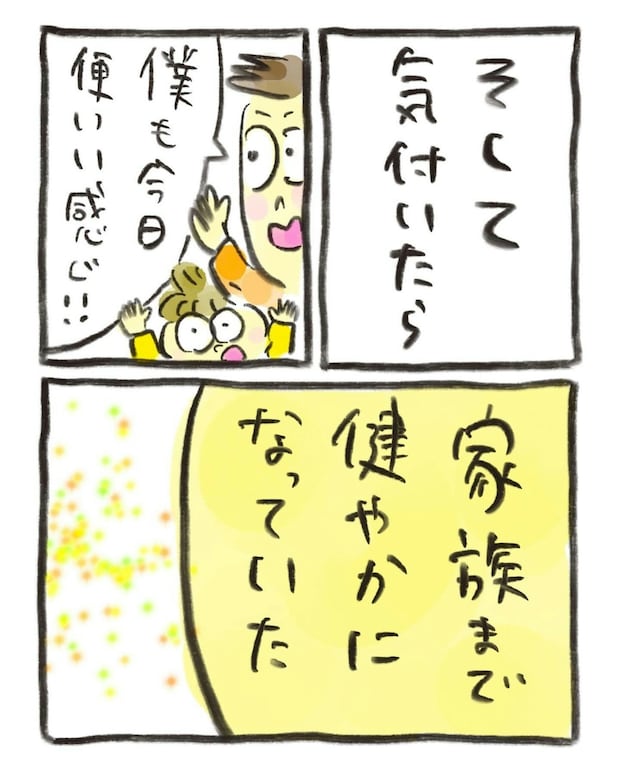 そして
気付いたら
僕も今日
便いい感じ!!
家族まで
健やかに
なっていた